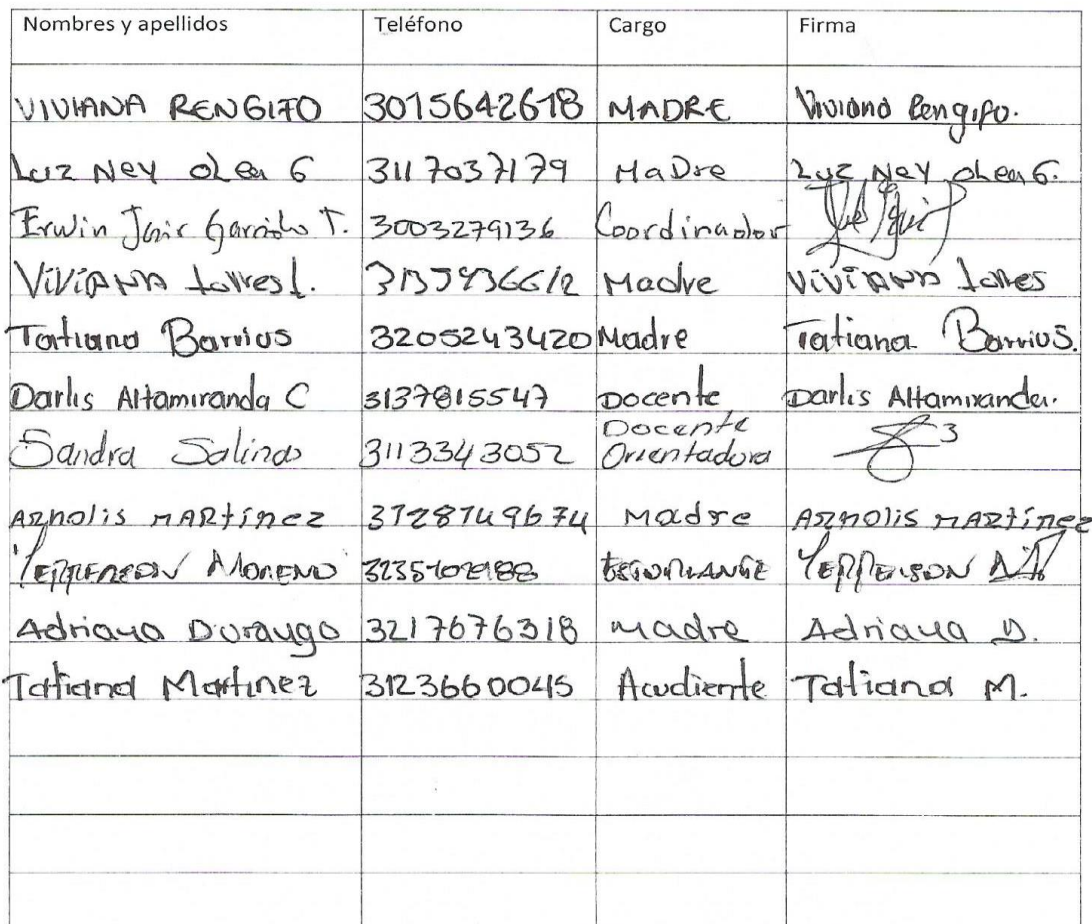 Nombres y apellidos Teléfono Cargo Firma
VIVIANA RENGIFO 3015642618 MADRE Viviana Rengifo.
Luz Ney olea G 3117037179 MaDre Luz Ney olea G.
Erwin Jair Garrido T. 3003279136 Coordinador
ViViANA torres l. Madre ViViANA torres
Tatiana Barrios 3205243420 Madre Tatiana Barrios.
Darlis Altamiranda C 3137815547 Docente Darlis Altamiranda.
Sandra Salinas 3113343052 Docente Orientadora
Arnolis MARtínez Madre Arnolis MARtínez
YEFFERSON MORENO ESTUDIANTE YEFFERSON
Adriana Durango 3217676318 madre Adriana D.
Tatiana Martinez 3123660045 Acudiente Tatiana M.